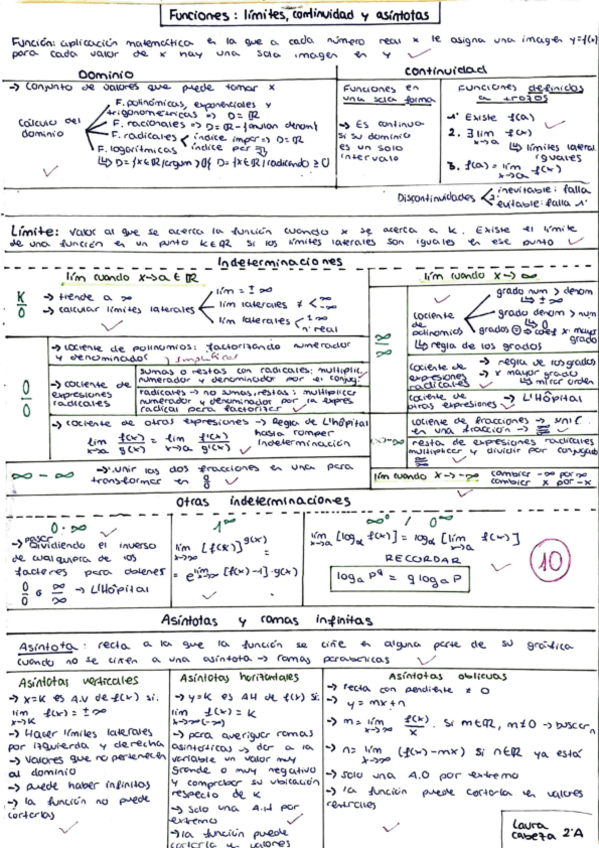 Funciones: límites, continuidad y asíntotas
Función: aplicación matemática en la que a cada número real x le asigna una imagen y=f(x)
para cada valor de x hay una sola imagen en y
Dominio
→ Conjunto de valores que puede tomar x
Cálculo del dominio
F. polinómicas, exponenciales y
trigonométricas => D=ℝ
F. racionales => D=ℝ-{anulan denom}
F. radicales
índice impar => D=ℝ
índice par
F. logarítmicas
D={x∈ℝ/argum>0}
D={x∈ℝ/radicando≥0}
Continuidad
Funciones en
una sola forma
→ Es continua
si su dominio
es un solo
intervalo
Funciones definidas
a trozos
1. Existe f(a)
2. ∃ lím x→a f(x)
↳ límites lateral
iguales
3. f(a) = lím x→a f(x)
Discontinuidades
inevitable: falla
evitable: falla 1
Límite: valor al que se acerca la función cuando x se acerca a k. Existe el límite
de una función en un punto k∈ℝ si los límites laterales son iguales en ese punto
Indeterminaciones
lím cuando x→a∈ℝ
K/0
→ tiende a ∞
→ calcular límites laterales
lím = ±∞
lím laterales ≠ <+∞ -∞
lím laterales
nº real
0/0
→ cociente de polinomios: factorizando numerador
y denominador y simplificar
→ cociente de
expresiones
radicales
sumas o restas con radicales: multiplic.
numerador y denominador por el conjug.
radicales → no sumas, restas: multiplicar
numerador y denominador por la expres
radical para factorizar
→ cociente de otras expresiones → Regla de L'hôpital
lím x→a f(x)/g(x) = lím x→a f'(x)/g'(x)
hasta romper
indeterminación
∞-∞
→ unir las dos fracciones en una para
transformar en 0/0
lím cuando x→∞
∞/∞
cociente
de
polinomios
grado num > denom
↳ ±∞
grado denom > num
↳ 0
grados = → coef x mayor
grado
↳ regla de los grados
cociente de
expresiones
radicales
→ regla de los grados
→ x mayor grado
↳ mirar orden
cociente de
otras expresiones
→ L'Hôpital
∞-∞
cociente de fracciones → unir
en una fracción → ∞/∞
resta de expresiones radicales
multiplicar y dividir por conjugado
∞/∞
lím cuando x→-∞
cambiar -∞ por ∞
cambiar x por -x
Otras indeterminaciones
0·∞
→ pasar
Dividiendo el inverso
de cualquiera de los
factores para obtener
0/0 ó ∞/∞ → L'Hôpital
1^∞
lím x→∞ [f(x)]^g(x) =
= e^lím x→∞ [f(x)-1]·g(x)
∞⁰ / 0⁰
lím x→a [logₐ f(x)] = logₐ [lím x→a f(x)]
RECORDAR
logₐ P^q = q logₐ P
10
Asíntotas y ramas infinitas
Asíntota: recta a la que la función se ciñe en alguna parte de su gráfica
cuando no se ciñen a una asíntota → ramas parabólicas
Asíntotas verticales
→ x=K es A.V de f(x) si:
lím x→K f(x) = ±∞
→ Hacer límites laterales
por izquierda y derecha
→ valores que no pertenecen
al dominio
→ puede haber infinitos
→ la función no puede
cortarlas
Asíntotas horizontales
→ y=K es AH de f(x) si:
lím x→∞(-∞) f(x) = K
→ para averiguar ramas
asintóticas → dar a la
variable un valor muy
grande o muy negativo
y comprobar su ubicación
respecto de K
→ solo una A.H por
extremo
→ la función puede
cortarla en valores
Asíntotas oblicuas
→ recta con pendiente ≠ 0
→ y = mx+n
→ m = lím x→∞ f(x)/x. Si m∈ℝ, m≠0 → buscar n
→ n = lím x→∞ (f(x)-mx) si n∈ℝ ya está
→ solo una A.O por extremo
→ la función puede cortarla en valores
centrales
Laura
Cabeza 2ºA